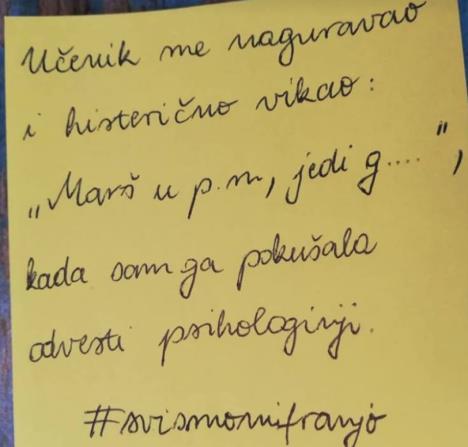 Učenik me naguravao
i histerično vikao:
„Marš u p.m, jedi g....",
kada sam ga pokušala
odvesti psihologinji.
#svismomifranjo